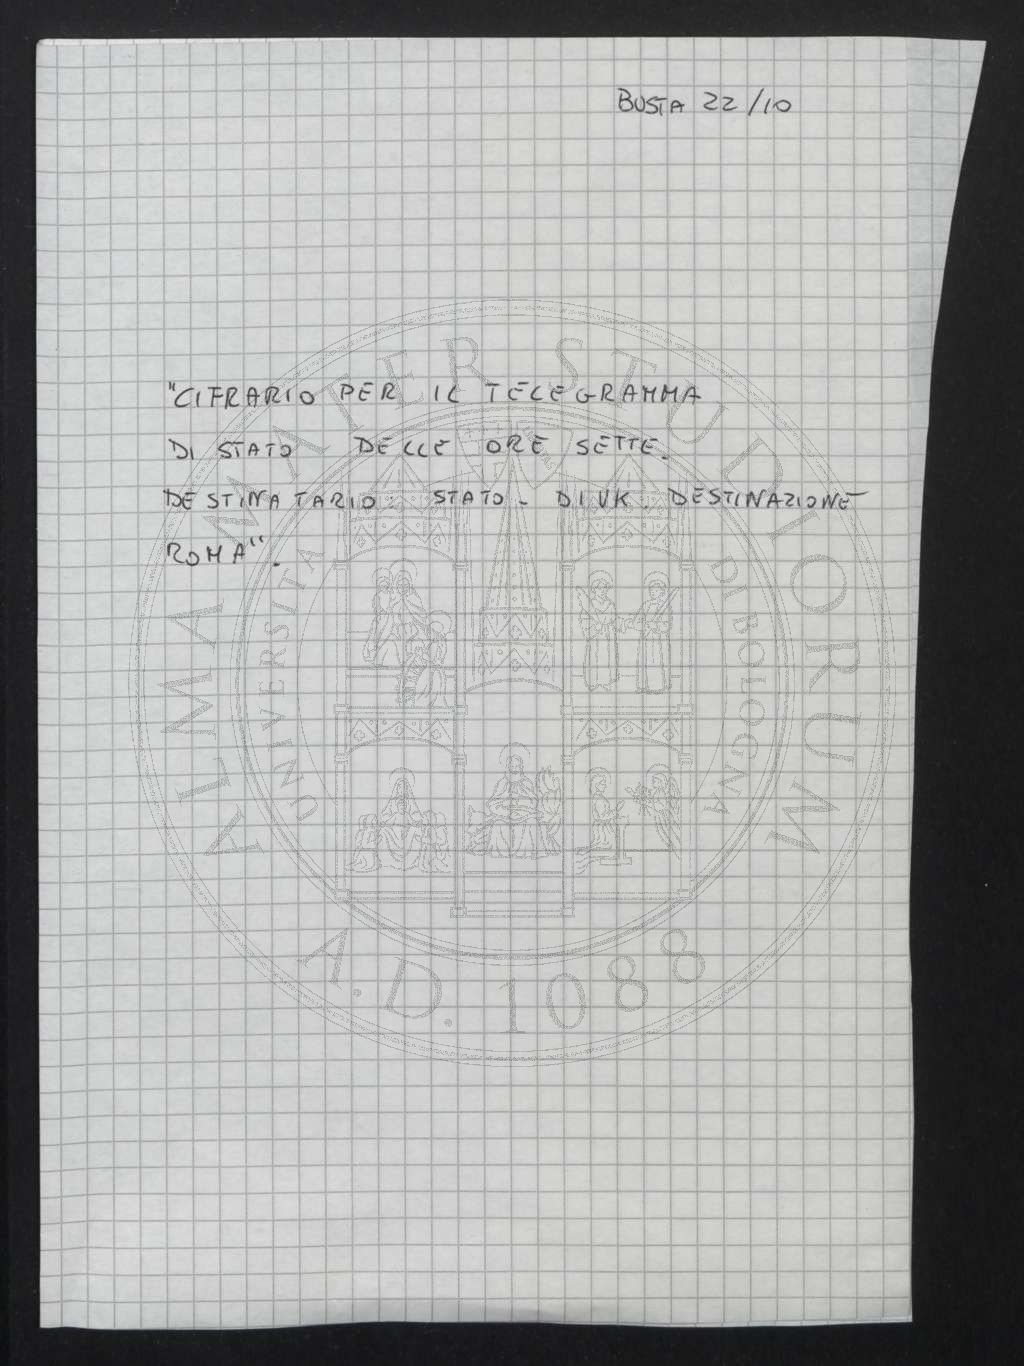 BUSTA 22/10
"CIFRARIO PER IL TELEGRAMMA
DI STATO DELLE ORE SETTE.
DESTINATARIO: STATO - DIUK. DESTINAZIONE
ROMA".
ALMA MATER STUDIORUM
UNIVERSITA DI BOLOGNA
A.D. 1088